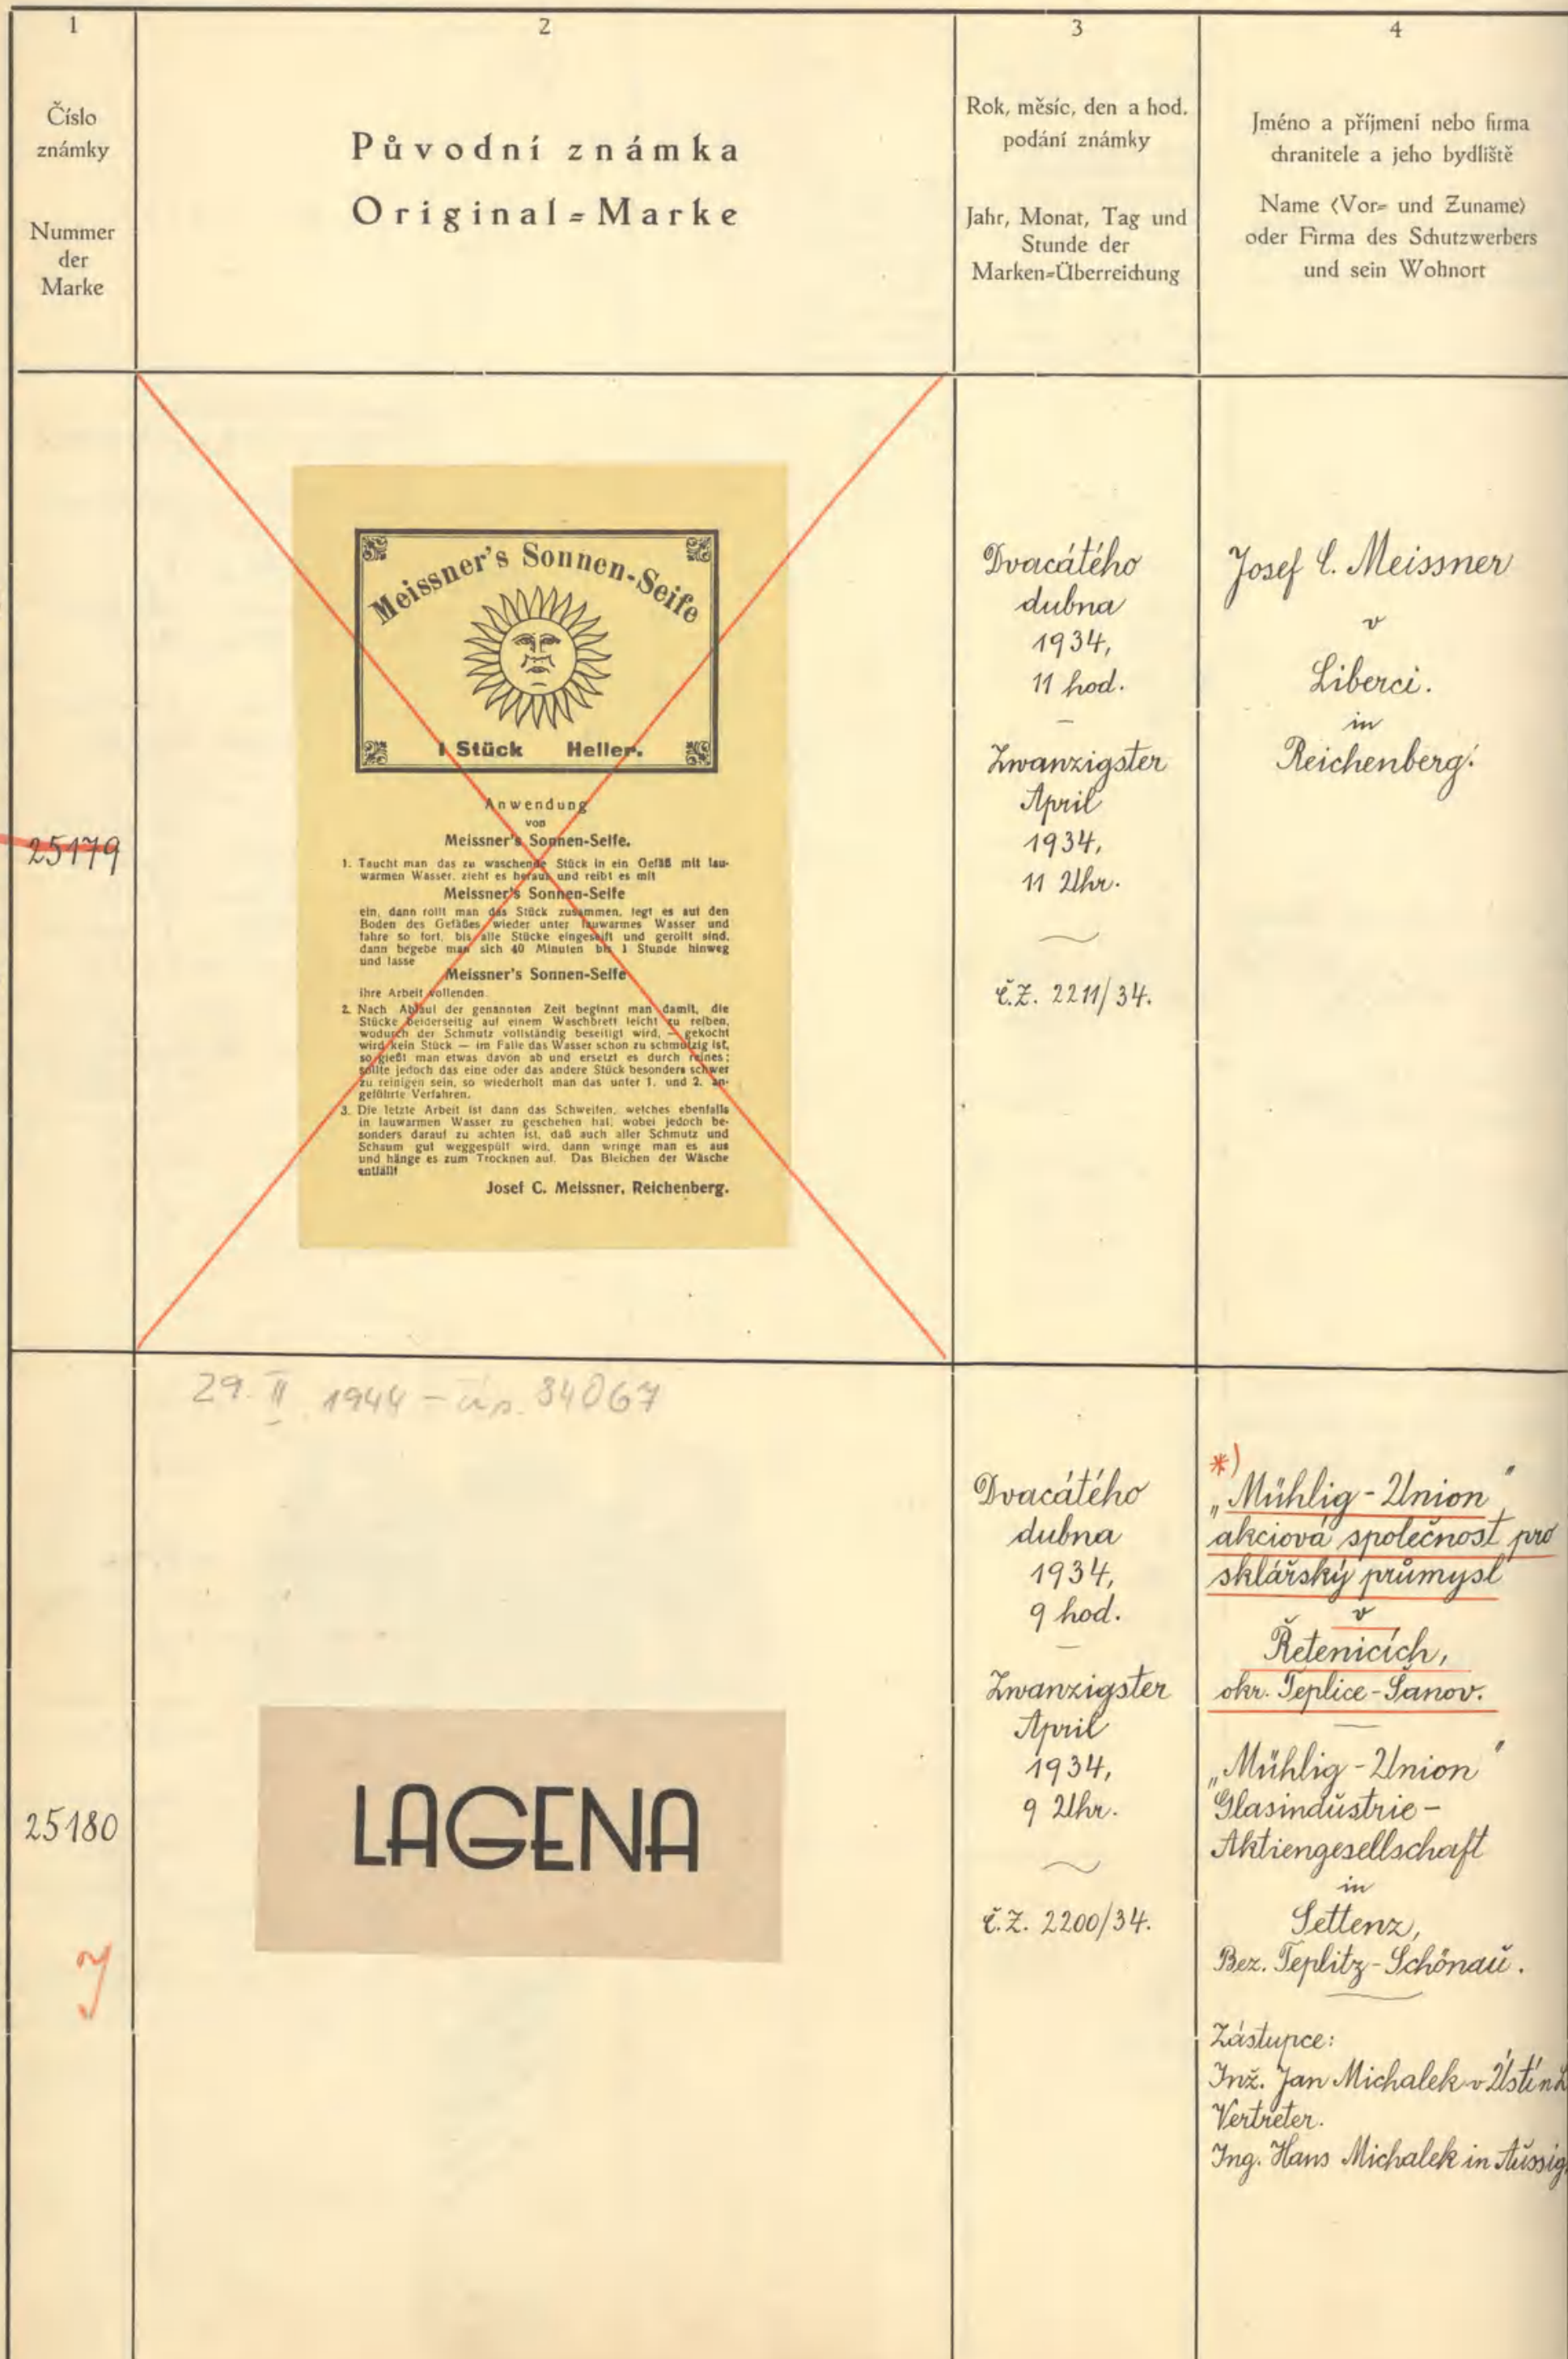 1
2
3
4
Číslo
známky
Nummer
der
Marke
Původní známka
Original=Marke
Rok, měsíc, den a hod.
podání známky
Jahr, Monat, Tag und
Stunde der
Marken=Überreichung
Jméno a příjmení nebo firma
chranitele a jeho bydliště
Name (Vor= und Zuname)
oder Firma des Schutzwerbers
und sein Wohnort
25179
Meissner's Sonnen-Seife
1 Stück Heller.
Anwendung
von
Meissner's Sonnen-Seife.
1. Taucht man das zu waschende Stück in ein Gefäß mit lau-
warmen Wasser, zieht es heraus und reibt es mit
Meissner's Sonnen-Seife
ein, dann rollt man das Stück zusammen, legt es auf den
Boden des Gefäßes wieder unter lauwarmes Wasser und
fahre so fort, bis alle Stücke eingeseift und gerollt sind,
dann begebe man sich 40 Minuten bis 1 Stunde hinweg
und lasse
Meissner's Sonnen-Seife
ihre Arbeit vollenden.
2. Nach Ablauf der genannten Zeit beginnt man damit, die
Stücke beiderseitig auf einem Waschbrett leicht zu reiben,
wodurch der Schmutz vollständig beseitigt wird, — gekocht
wird kein Stück — im Falle das Wasser schon zu schmutzig ist,
so gießt man etwas davon ab und ersetzt es durch reines;
sollte jedoch das eine oder das andere Stück besonders schwer
zu reinigen sein, so wiederholt man das unter 1. und 2. an-
geführte Verfahren.
3. Die letzte Arbeit ist dann das Schweifen, welches ebenfalls
in lauwarmen Wasser zu geschehen hat, wobei jedoch be-
sonders darauf zu achten ist, daß auch aller Schmutz und
Schaum gut weggespült wird, dann wringe man es aus
und hänge es zum Trocknen auf. Das Bleichen der Wäsche
entfällt
Josef C. Meissner, Reichenberg.
Dvacátého
dubna
1934,
11 hod.
—
Zwanzigster
April
1934,
11 Uhr.
č.Z. 2211/34.
Josef C. Meissner
v
Liberci.
in
Reichenberg.
25180
29. II 1944 - 84067
LAGENA
Dvacátého
dubna
1934,
9 hod.
—
Zwanzigster
April
1934,
9 Uhr.
č.Z. 2200/34.
*)
„Mühlig-Union"
akciová společnost pro
sklářský průmysl
v
Řetenicích,
okr. Teplice-Šanov.
—
„Mühlig-Union"
Glasindustrie-
Aktiengesellschaft
in
Settenz,
Bez. Teplitz-Schönau.
Zástupce:
Inž. Jan Michalek v Ústí n
Vertreter.
Ing. Hans Michalek in Aussig